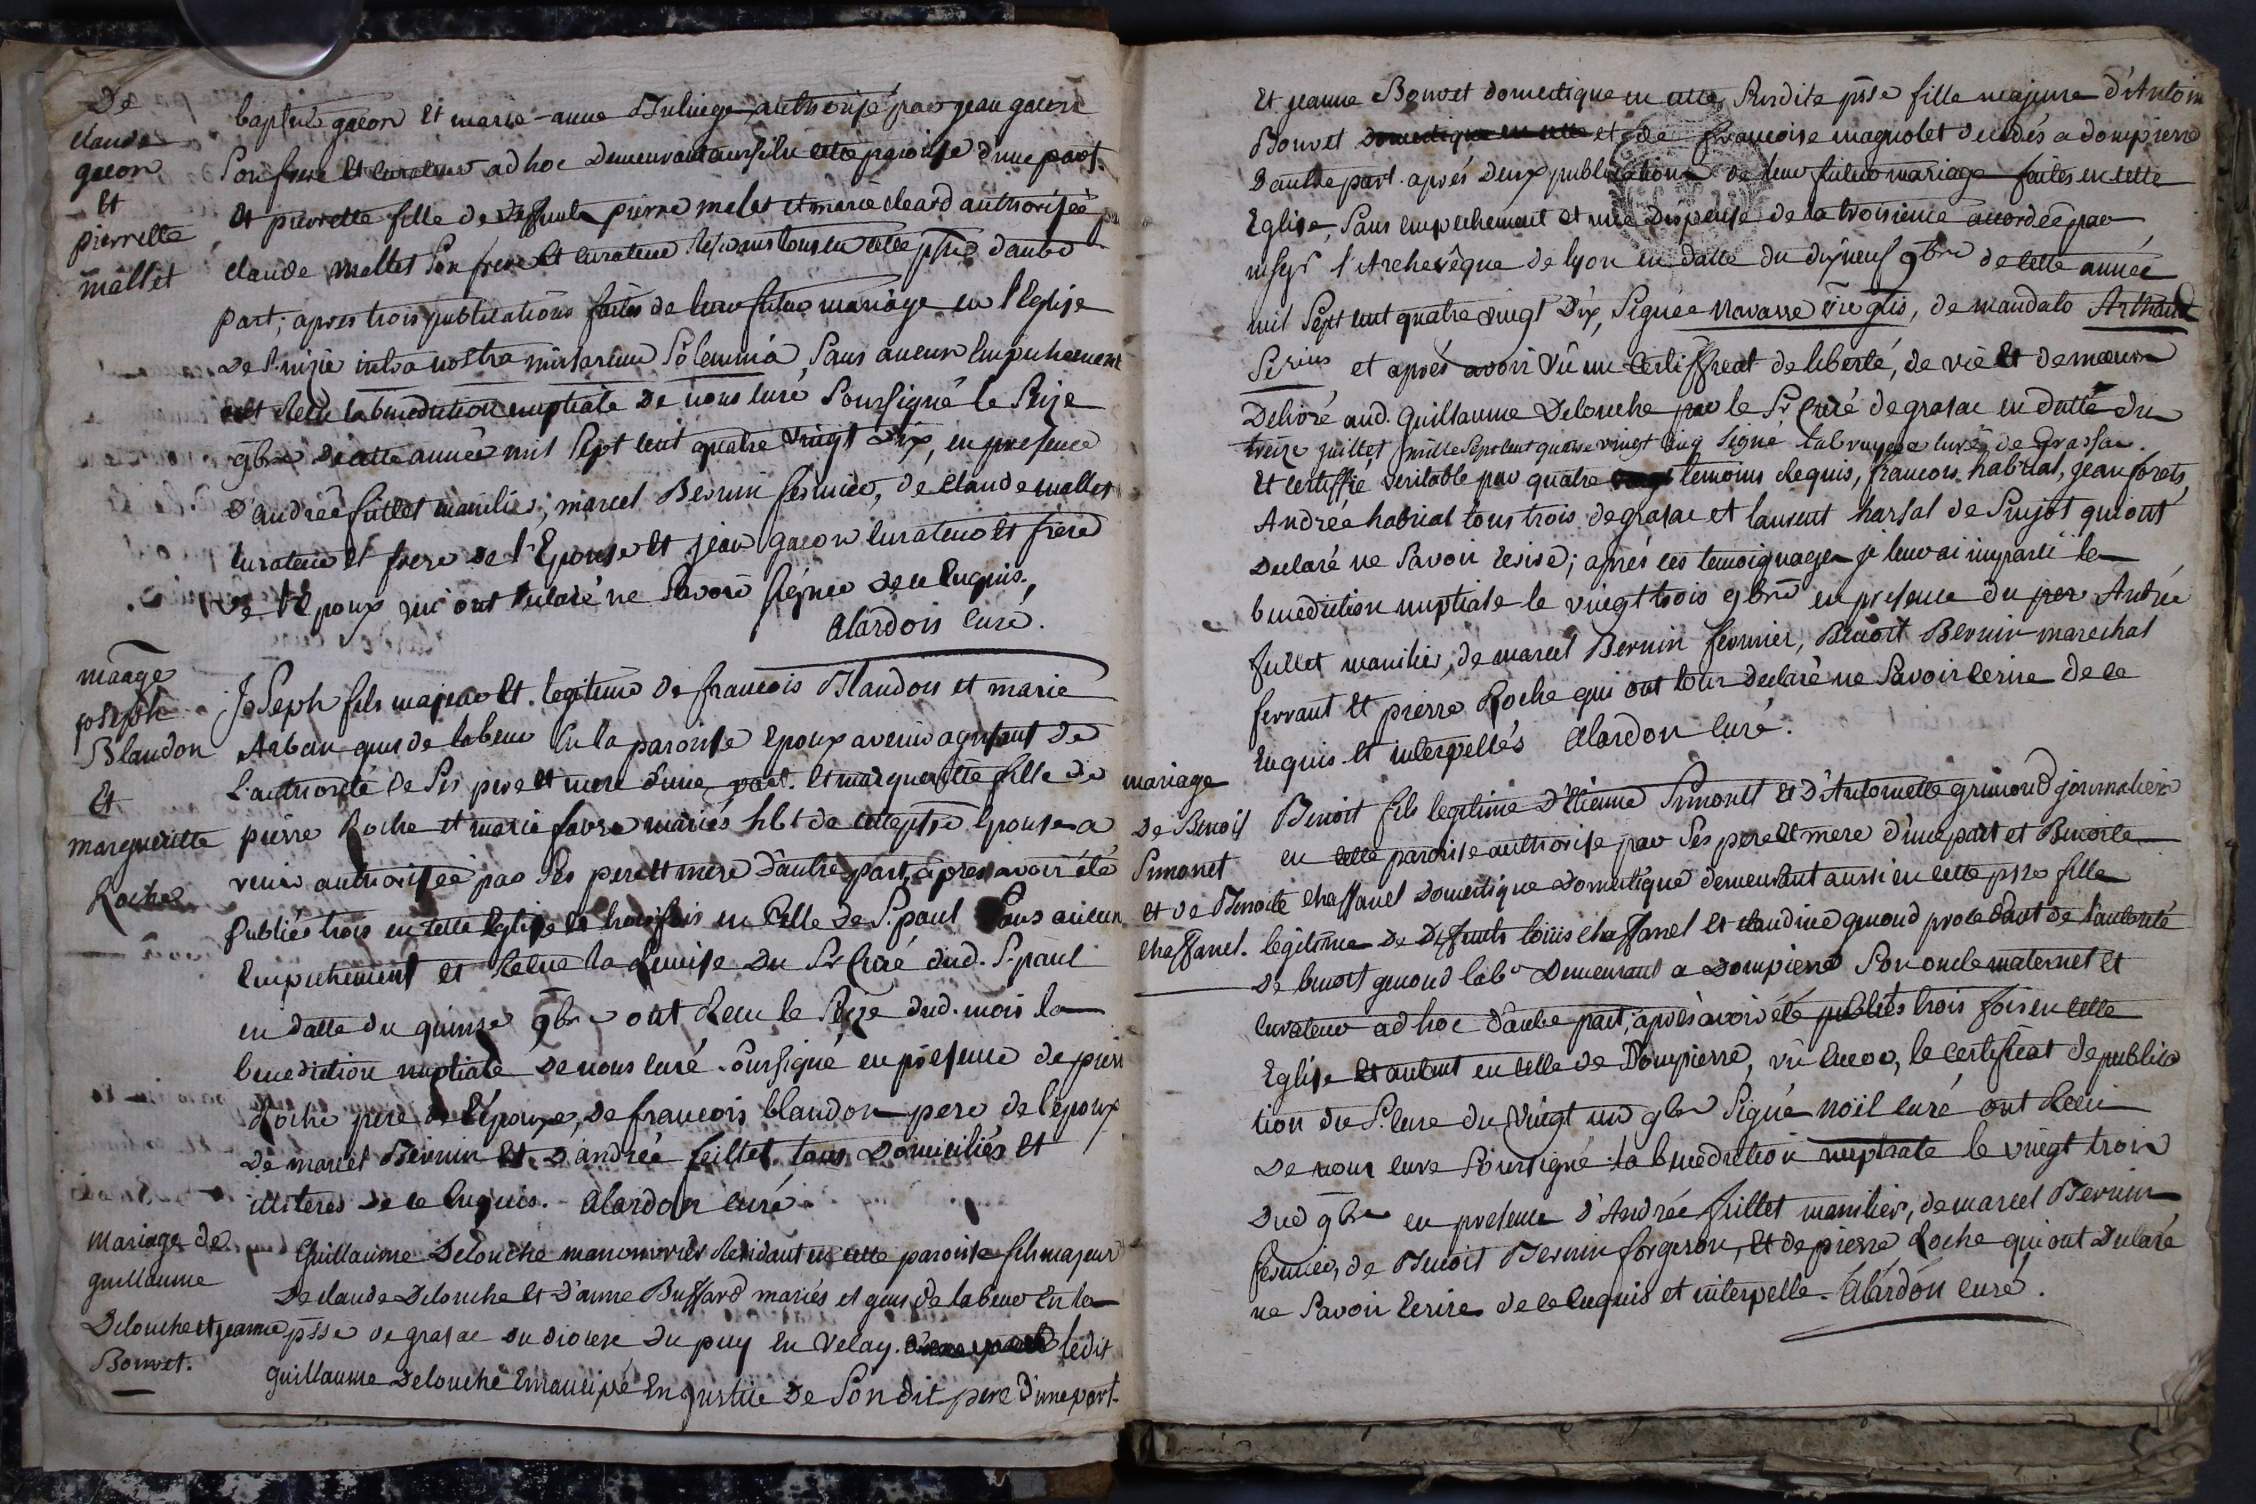 De
claude
gacon
et
pierrette
mallet
baptiste gacon et marie-anne authorisé par jean gacon
son frere et curateur ad hoc demeurant aussi en cette paroisse d'une part.
et pierrette fille de deffunts pierre malet et marie cleard authorisée par
claude mallet son frere et curateur residans tous en cette psse d'autre
part; apres trois publications faites de leur futur mariage en l'Eglise
de St. nizié intra nostra missarum solemnia, sans aucun empechement
ont recu la benediction nuptiale de nous curé soussigné le seize
9bre de cette année mil sept cent quatre vingt dix, en presence
d'andrée fuillet manilier, marcel Bernin fermier, de claude mallet
curateur et frere de l'Epouse et jean gacon curateur et frere
de l'Epoux qui ont declaré ne savoir signer de ce enquis,
Alardon curé.
mariage
joseph
Blandon
et
margueritte
Roche
Joseph fils majeur et legitime de francois Blandon et marie
Arban gens de labeur en la paroisse epoux avenir agissant de
l'authorité de ses pere et mere d'une part. et margueritte fille de
pierre Roche et marie favre mariés hbt de cette psse Epouse a
venir authorisée par ses pere et mere d'autre part, apres avoir été
publiés trois en cette Eglise et trois fois en celle de St. paul sans aucun
empechement et recue la Remise du Sr Curé dud. St. paul
en datte du quinse 9bre ont recu le seize dud. mois la
benediction nuptiale de nous curé soussigné en presence de pierre
Roche pere de l'épouse, de francois blandon pere de l'epoux
de marcel Bernin et d'andrée feillet tous domiciliés et
illiteres de ce enquis. Alardon curé
mariage de
guillaume
Delouche et jeanne
Bonvet.
Guillaume Delouche manouvrier residant en cette paroisse fils majeur
de claude Delouche et d'anne Buffard mariés et gens de labeur en la
psse de grasac du diocese du puy en velay. ledit
guillaume Delouche Emancipé en justice de son dit pere d'une part.
et jeanne Bonvet domestique en cette susdite psse fille majeure d'Antoine
Bonvet domestique en cette et de francoise magnolet decedés a dompierre
d'autre part. aprés deux publications de leur futur mariage faites en cette
Eglise, sans empechement et une dispense de la troisieme accordée par
msgr l'Archevêque de lyon en datte du dixneuf 9bre de cette année
mil sept cent quatre vingt dix, signée Navarre vic gnis, de mandato Arthaud
et aprés avoir vû un Certifficat de liberté, de vie et de mœurs
delivré aud. guillaume Delouche par le Sr Curé de grasac en datte du
treize juillet mille sept cent quatre vingt cinq signé labruyere curé de Grassac.
et certiffié veritable par quatre temoins Requis, francois habrial, jean forets,
Andrée habrial tous trois de grasac et laurent harsal de Pinjot qui ont
declaré ne savoir écrire; aprés ces temoignages je leur ai imparti la
benediction nuptiale le vingt trois 9bre en presence du per Andrée
fuillet manilier, de marcel Bernin fermier, Benoit Bernin marechal
ferrant et pierre Roche qui ont tous declaré ne savoir ecrire de ce
enquis et interpellés Alardon curé.
mariage
De Benoit
Simonet
et de Benoite
chaffanel.
Benoit fils legitime d'Etienne Simonet et d'Antoinette grimond journalier
en cette paroisse authorise par ses pere et mere d'une part et Benoite
chaffanel domestique domestique demeurant aussi en cette psse fille
legitime de deffunts louis chaffanel et claudine genoud procedant de l'autorité
de benoit genoud labr demeurant a dompierre son oncle maternel et
curateur ad hoc d'autre part, après avoir été publiés trois fois en cette
Eglise et autant en celle de Dompierre, vû encore, le certificat de publica
tion du Sr. Cure du vingt un 9bre signé Noël curé ont Recu
de nous cure soussigné la benediction nuptiale le vingt trois
dud 9bre en presence d'Andrée fuillet manilier, de marcel Bernin
fermier, de Benoit Bernin forgeron, et de pierre Roche qui ont Declaré
ne savoir ecrire de ce enquis et interpelle. Alardon curé.